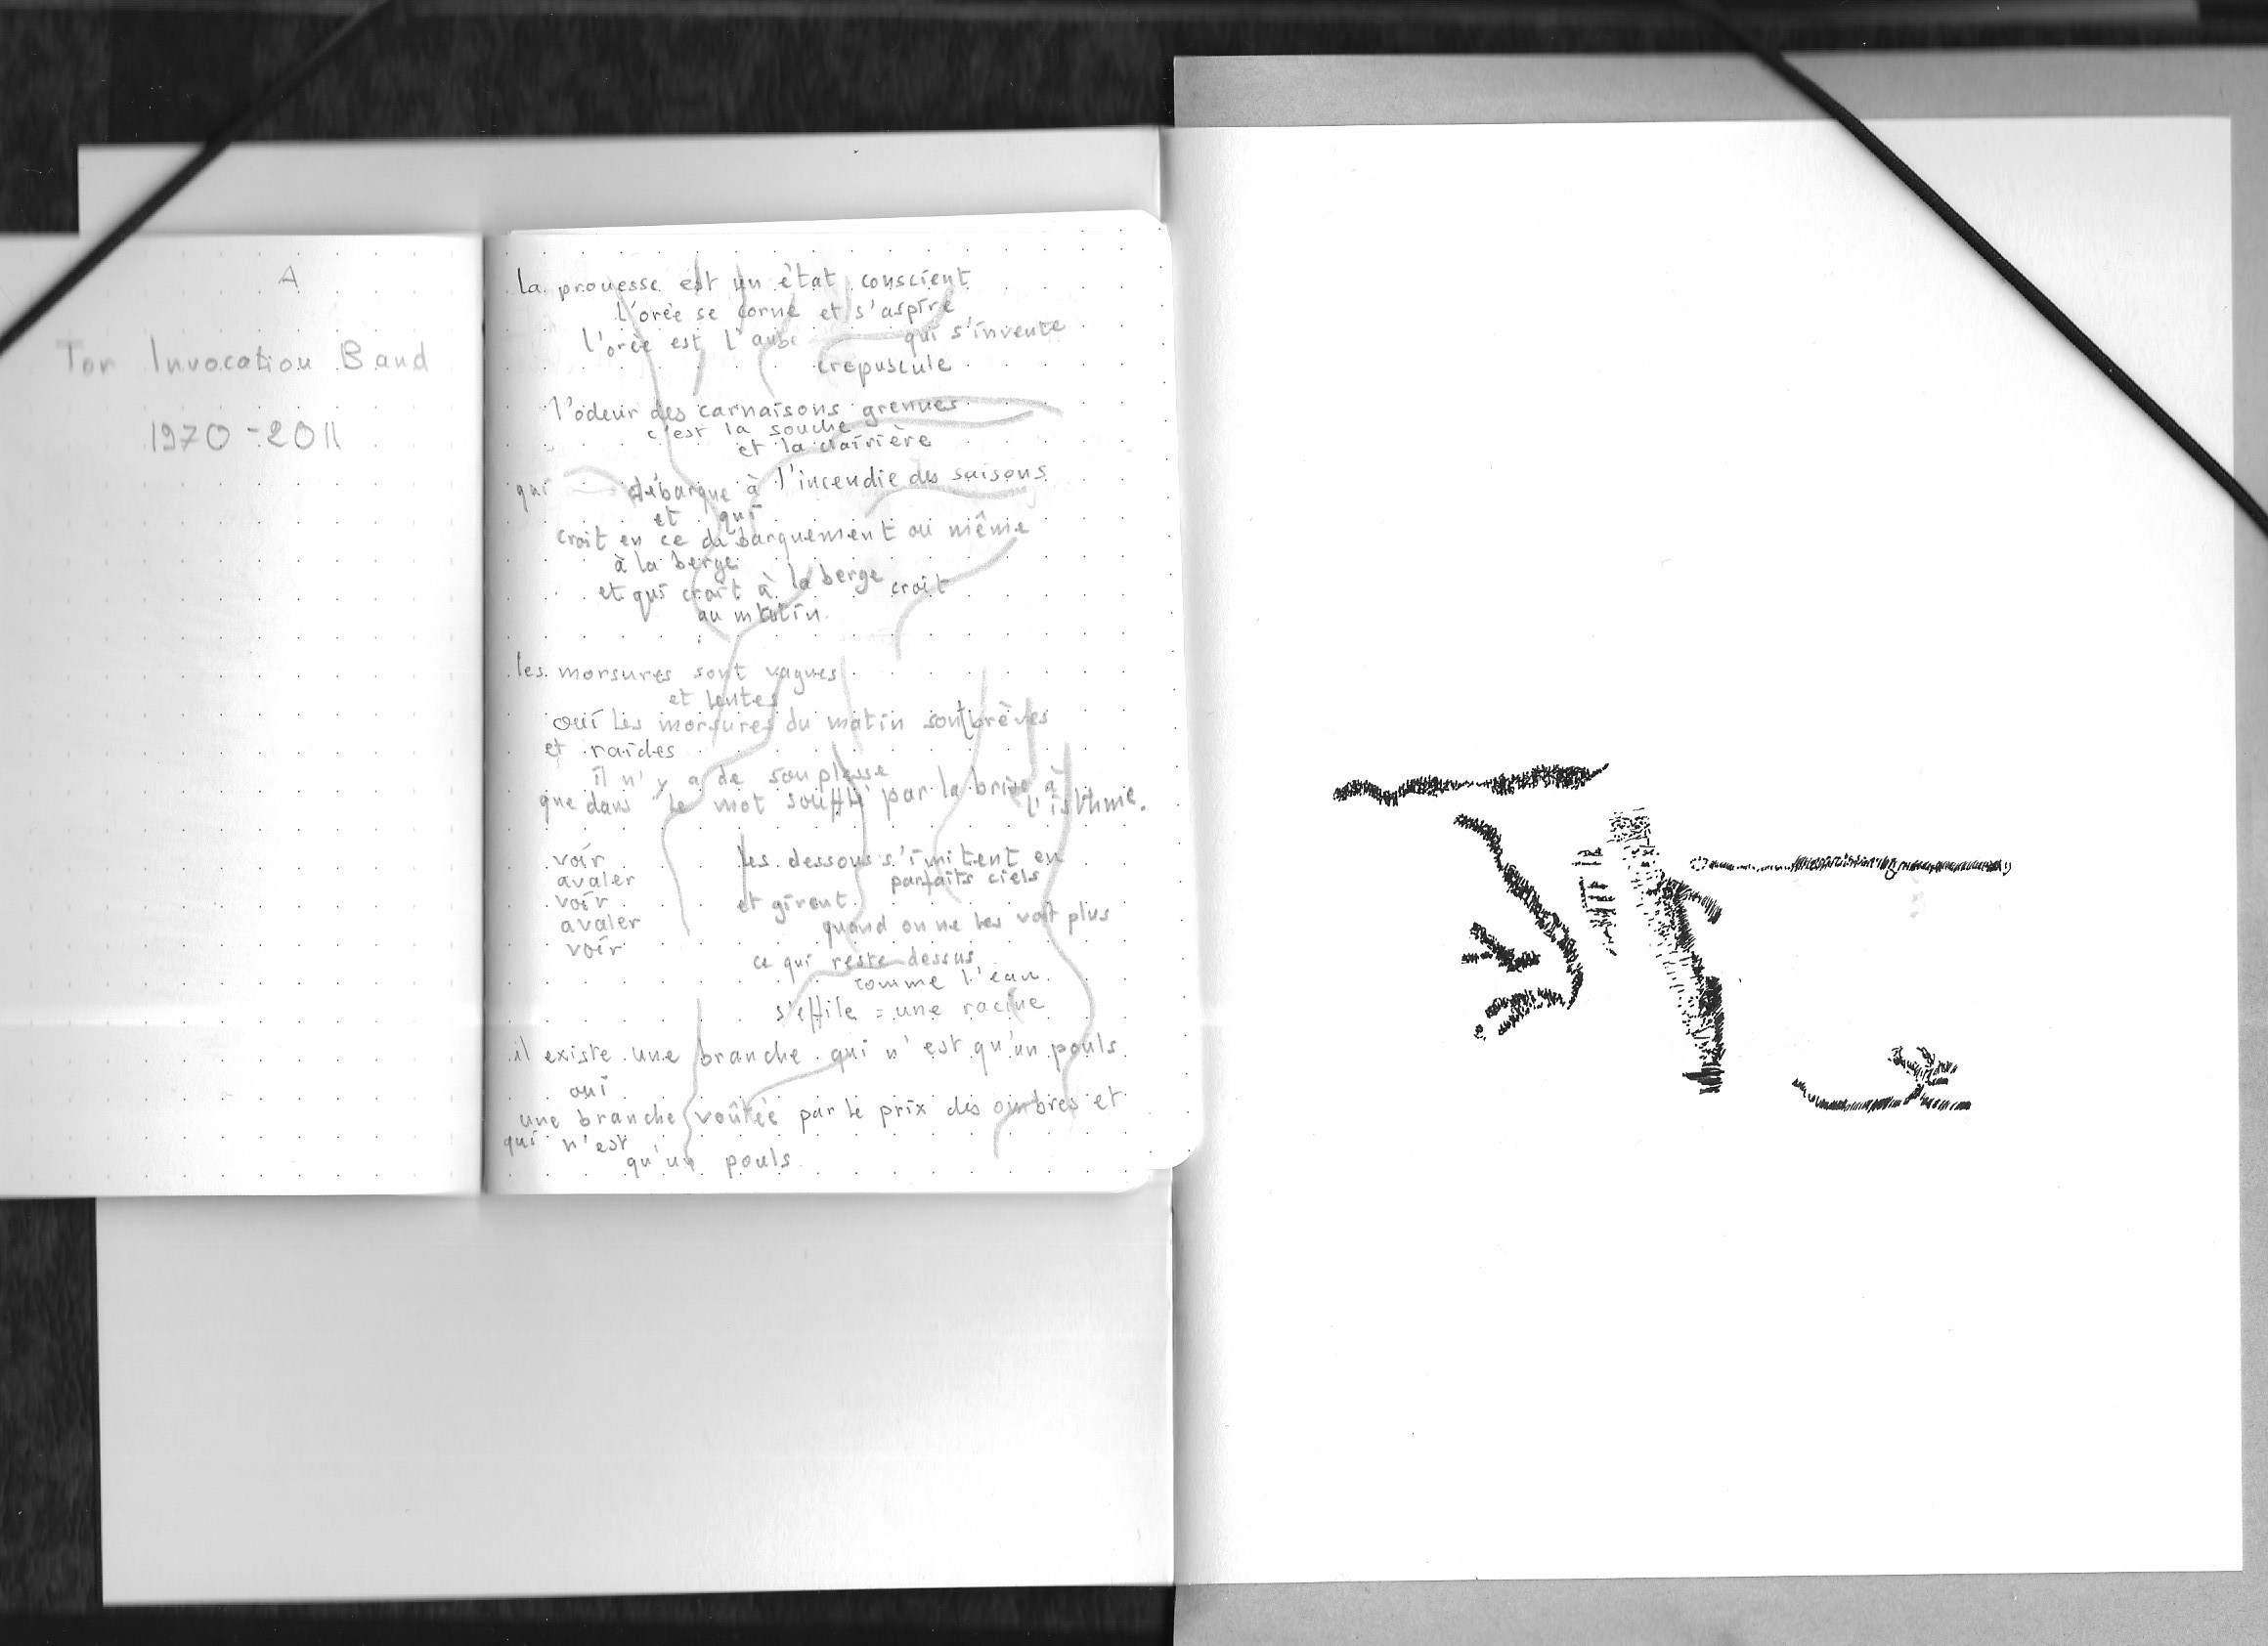 A
Tor Invocation Band
1970-2011
la prouesse est un état conscient
l'orée se corne et s'aspire
l'orée est l'aube qui s'invente
crepuscule
l'odeur des carnaisons grenues
c'est la souche
et la clairière
qui débarque à l'incendie des saisons
et qui
croit en ce débarquement ou même
à la berge
et qui croit à la berge croit
au matin.
les morsures sont vagues
et lentes
oui les morsures du matin sont brèves
et raides
il n'y a de souplesse
que dans le mot soufflé par la brise à
l'isthme.
voir
avaler
voir
avaler
voir
les dessous s'imitent en
parfaits ciels
et girent
quand on ne les voit plus
ce qui reste dessus
comme l'eau
s'effile = une racine
il existe une branche qui n'est qu'un pouls
oui
une branche voûtée par le prix des ombres et
qui n'est
qu'un pouls